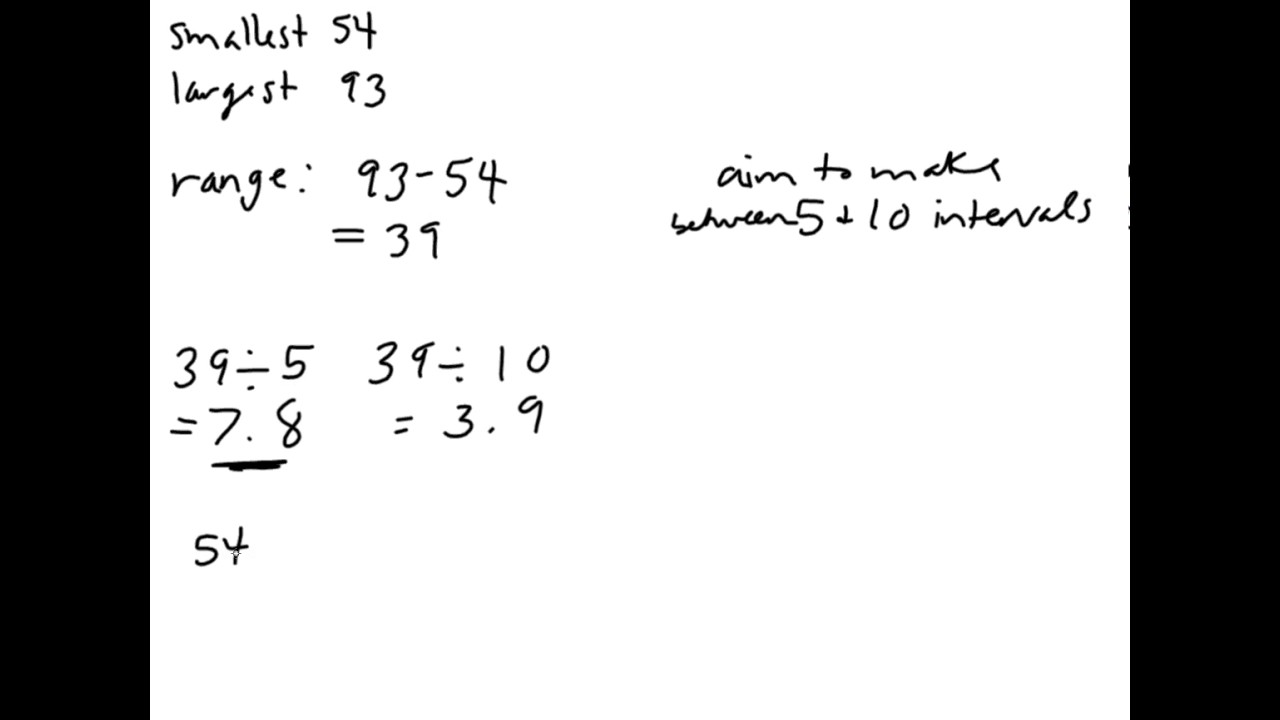 smallest 54
largest 93
range: 93-54
= 39
aim to make
between 5 + 10 intervals
39÷5 39÷10
=7.8 = 3.9
54